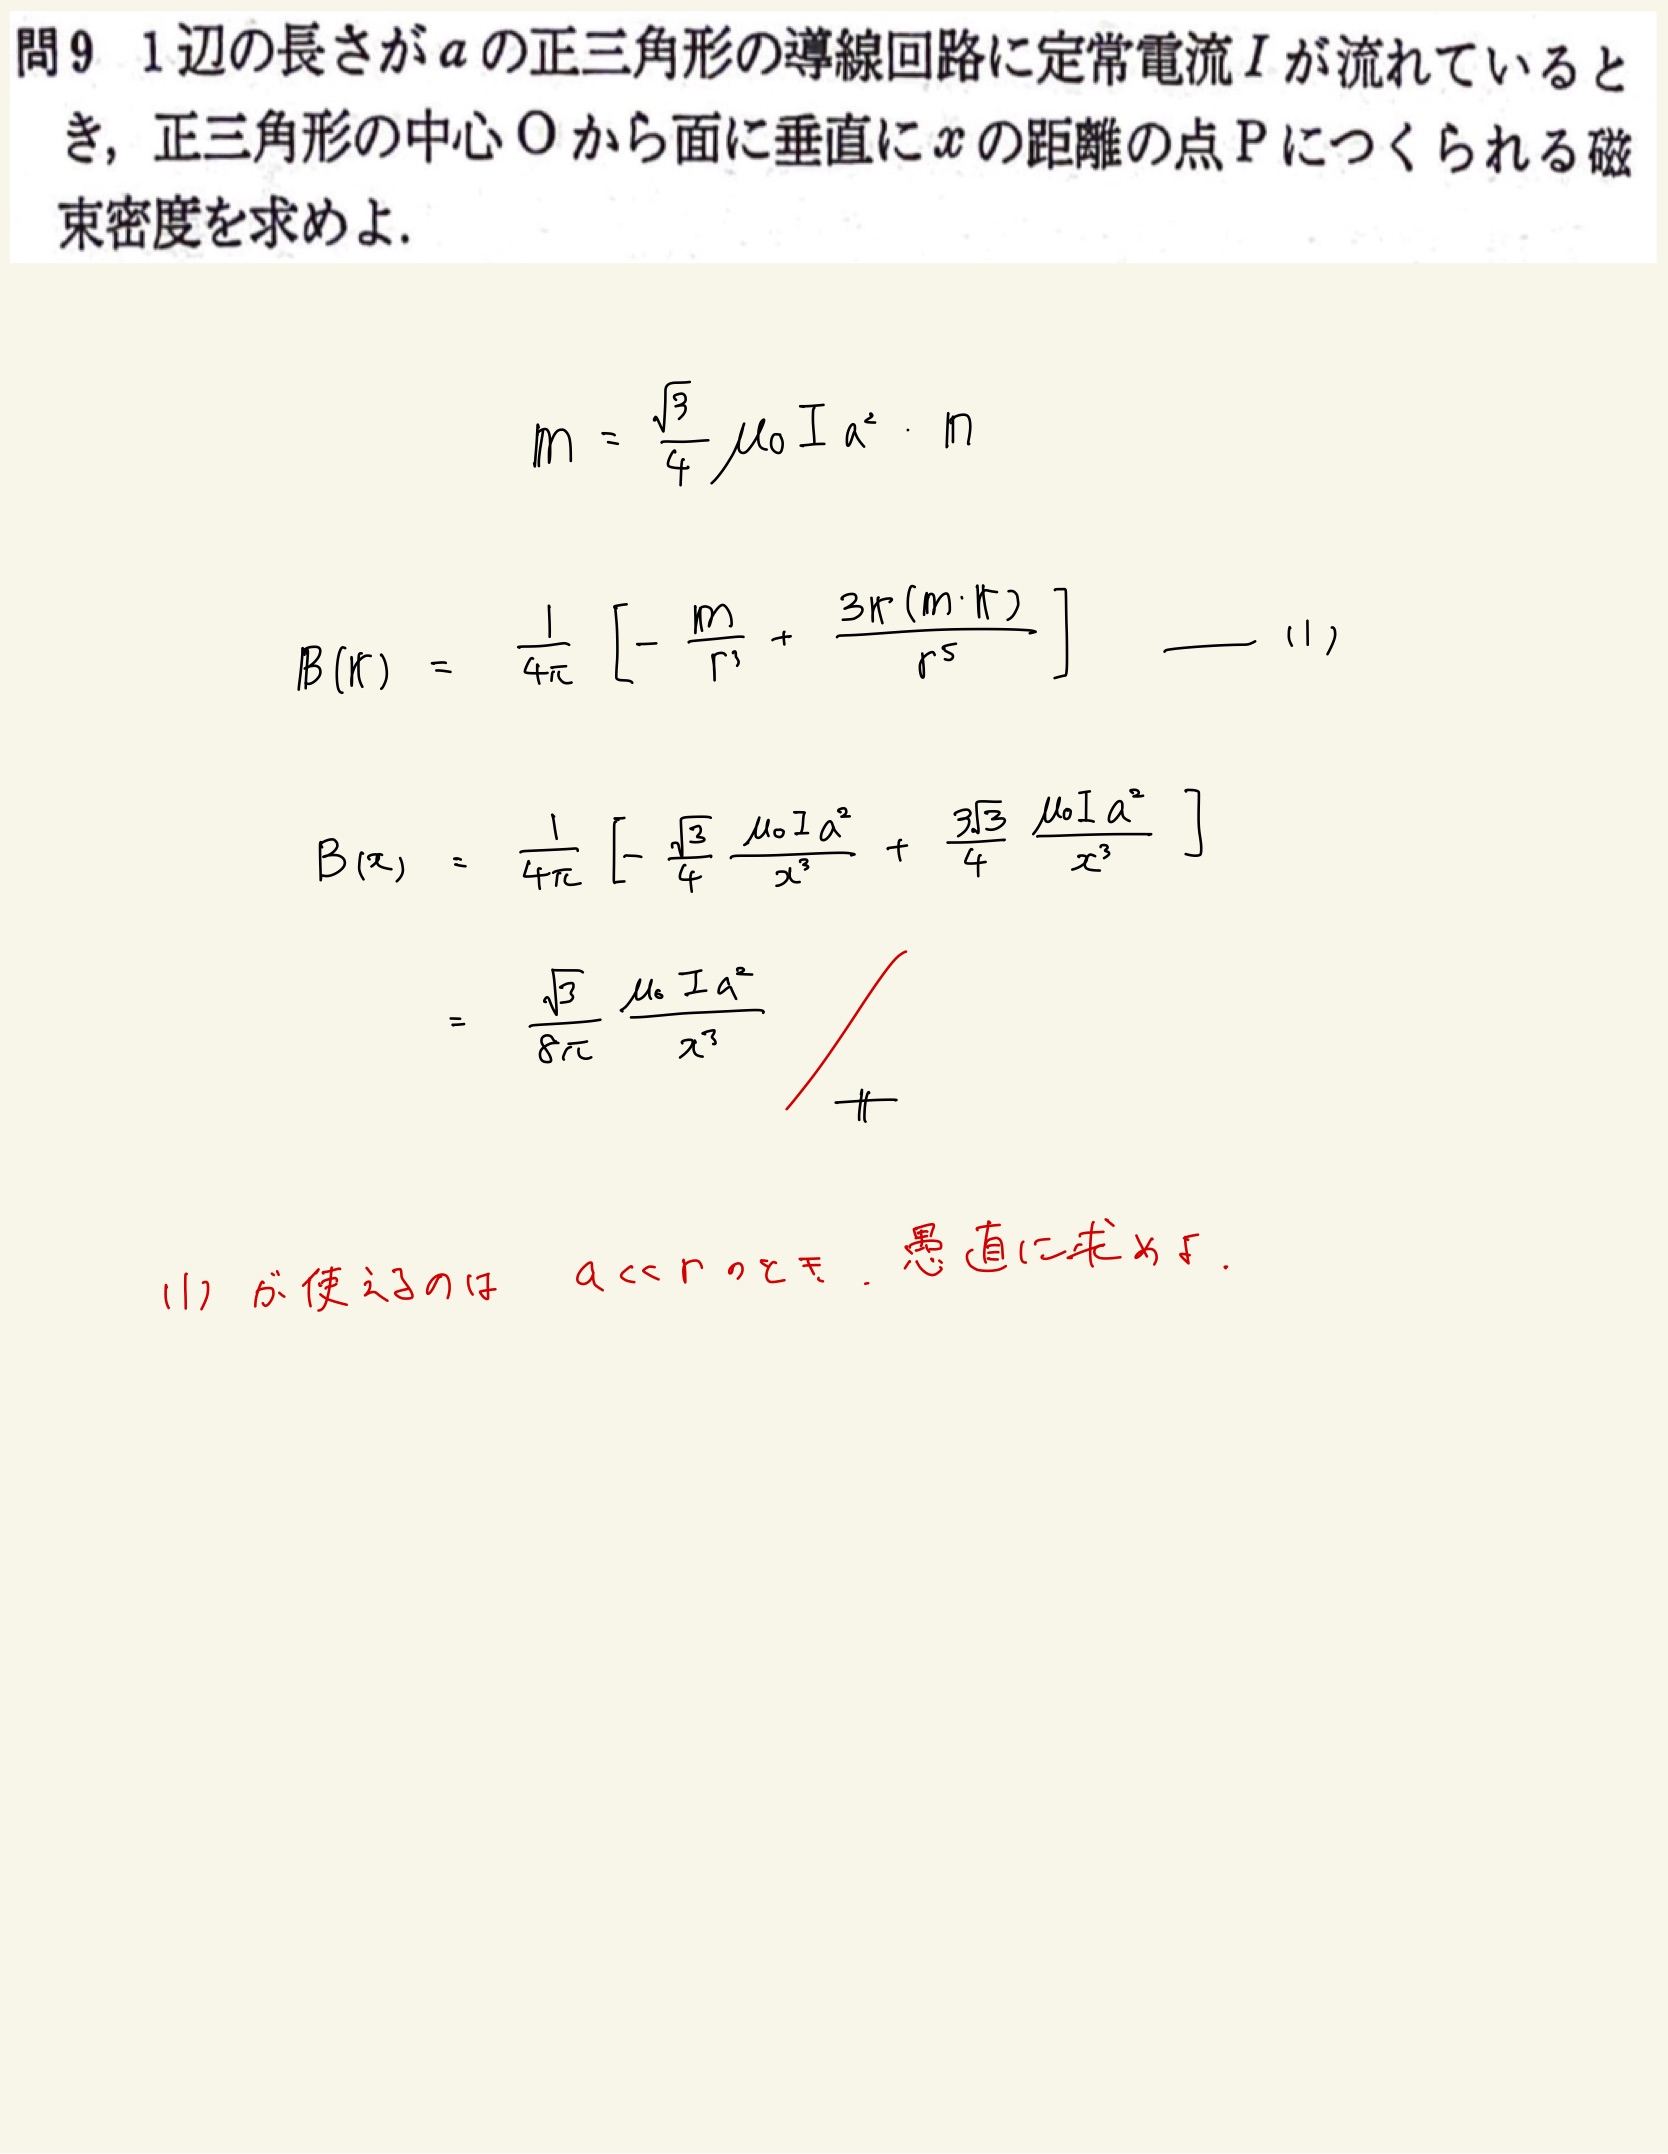 問9 1辺の長さがaの正三角形の導線回路に定常電流Iが流れていると
き，正三角形の中心Oから面に垂直にxの距離の点Pにつくられる磁
束密度を求めよ．
m = √3/4 μ₀ I a² · n
B(r) = 1/4π [ - m/r³ + 3r(m·r)/r⁵ ] —— (1)
B(x) = 1/4π [ - √3/4 μ₀Ia²/x³ + 3√3/4 μ₀Ia²/x³ ]
= √3/8π μ₀Ia²/x³
(1) が使えるのは a<<rのとき. 愚直に求めよ.